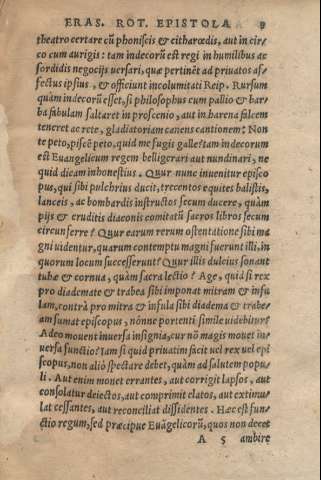 ERAS. ROT. EPISTOLA 9
theatro certare cũ phonascis & citharœdis, aut in cir-
co cum aurigis: tam indecorũ est regi in humilibus ac
sordidis negocijs uersari, quæ pertinẽt ad priuatos af
fectus ipsius, & officiunt incolumitati Reip. Rursum
quàm indecorũ esset, si philosophus cum pallio & bar
ba fabulam saltaret in proscenio, aut in harena falcem
teneret ac rete, gladiatoriam canens cantionem: Non
te peto, piscẽ peto, quid me fugis galle? tam indecorum
est Euãgelicum regem belligerari aut nundinari, ne
quid dicam inhonestius. Quur nunc inuenitur episco
pus, qui sibi pulchrius ducit, trecentos equites balistis,
lanceis, ac bombardis instructos secum ducere, quàm
pijs & eruditis diaconis comitatũ sacros libros secum
circunferre? Quur earum rerum ostentatione sibi ma
gni uidentur, quarum contemptu magni fuerunt illi, in
quorum locum successerunt? Quur illis dulcius sonant
tubæ & cornua, quàm sacra lectio? Age, quid si rex
pro diademate & trabea sibi imponat mitram & infu
lam, contrà pro mitra & infula sibi diadema & trabe-
am sumat episcopus, nónne portenti simile uidebitur?
Adeo mouent inuersa insignia, cur nõ magis mouet in-
uersa functio? Iam si quid priuatim facit uel rex uel epi
scopus, non aliò spectare debet, quàm ad salutem popu
li. Aut enim monet errantes, aut corrigit lapsos, aut
consolatur deiectos, aut comprimit elatos, aut extimu-
lat cessantes, aut reconciliat dissidentes. Hæc est fun-
ctio regum, sed præcipue Euãgelicorũ, quos non decet
A 5 ambire